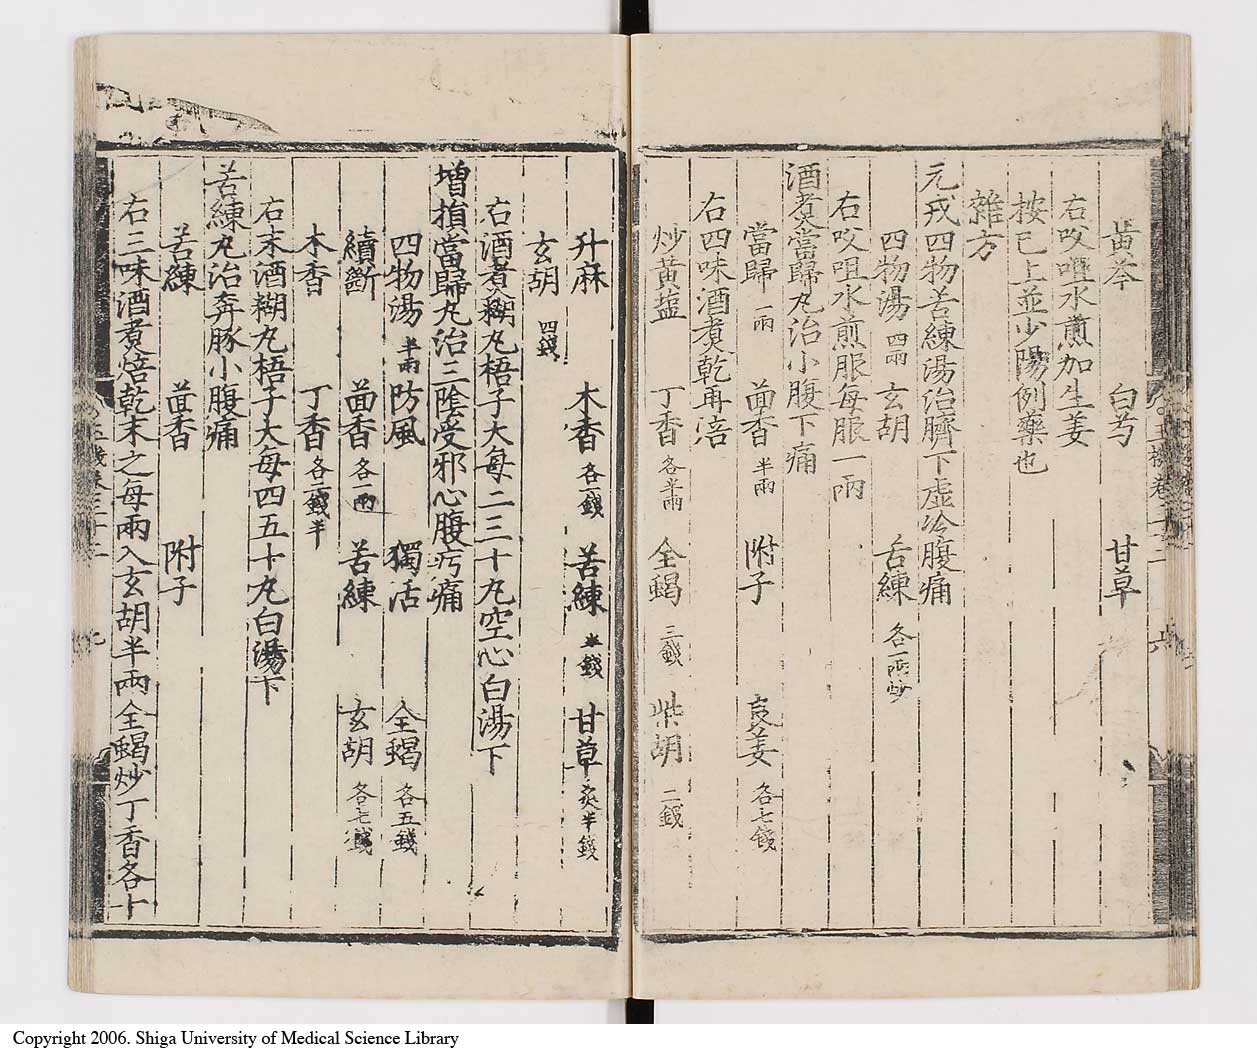 黃芩 白芍 甘草
右㕮咀水煎加生姜
按已上並少陽例藥也
雜方
元戎四物苦練湯治臍下虚冷腹痛
四物湯四兩 玄胡 苦練各一兩炒
右㕮咀水煎服每服一兩
酒煑當歸丸治小腹下痛
當歸一兩 茴香半兩 附子 良姜各七錢
右四味酒煑乾再涪
炒黃盐 丁香各半兩 全蝎三錢 柴胡二錢
升麻 木香各一錢 苦練半錢 甘草炙半錢
玄胡四錢
右酒煑糊丸梧子大每二三十丸空心白湯下
增損當歸丸治三陰受邪心腹㽱痛
四物湯半兩 防風 獨活 全蝎各五錢
續斷 茴香各一兩 苦練 玄胡各七錢
木香 丁香各二錢半
右末酒糊丸梧子大每四五十丸白湯下
苦練丸治奔豚小腹痛
苦練 茴香 附子
右三味酒煑焙乾末之每兩入玄胡半兩全蝎炒丁香各十
Copyright 2006. Shiga University of Medical Science Library